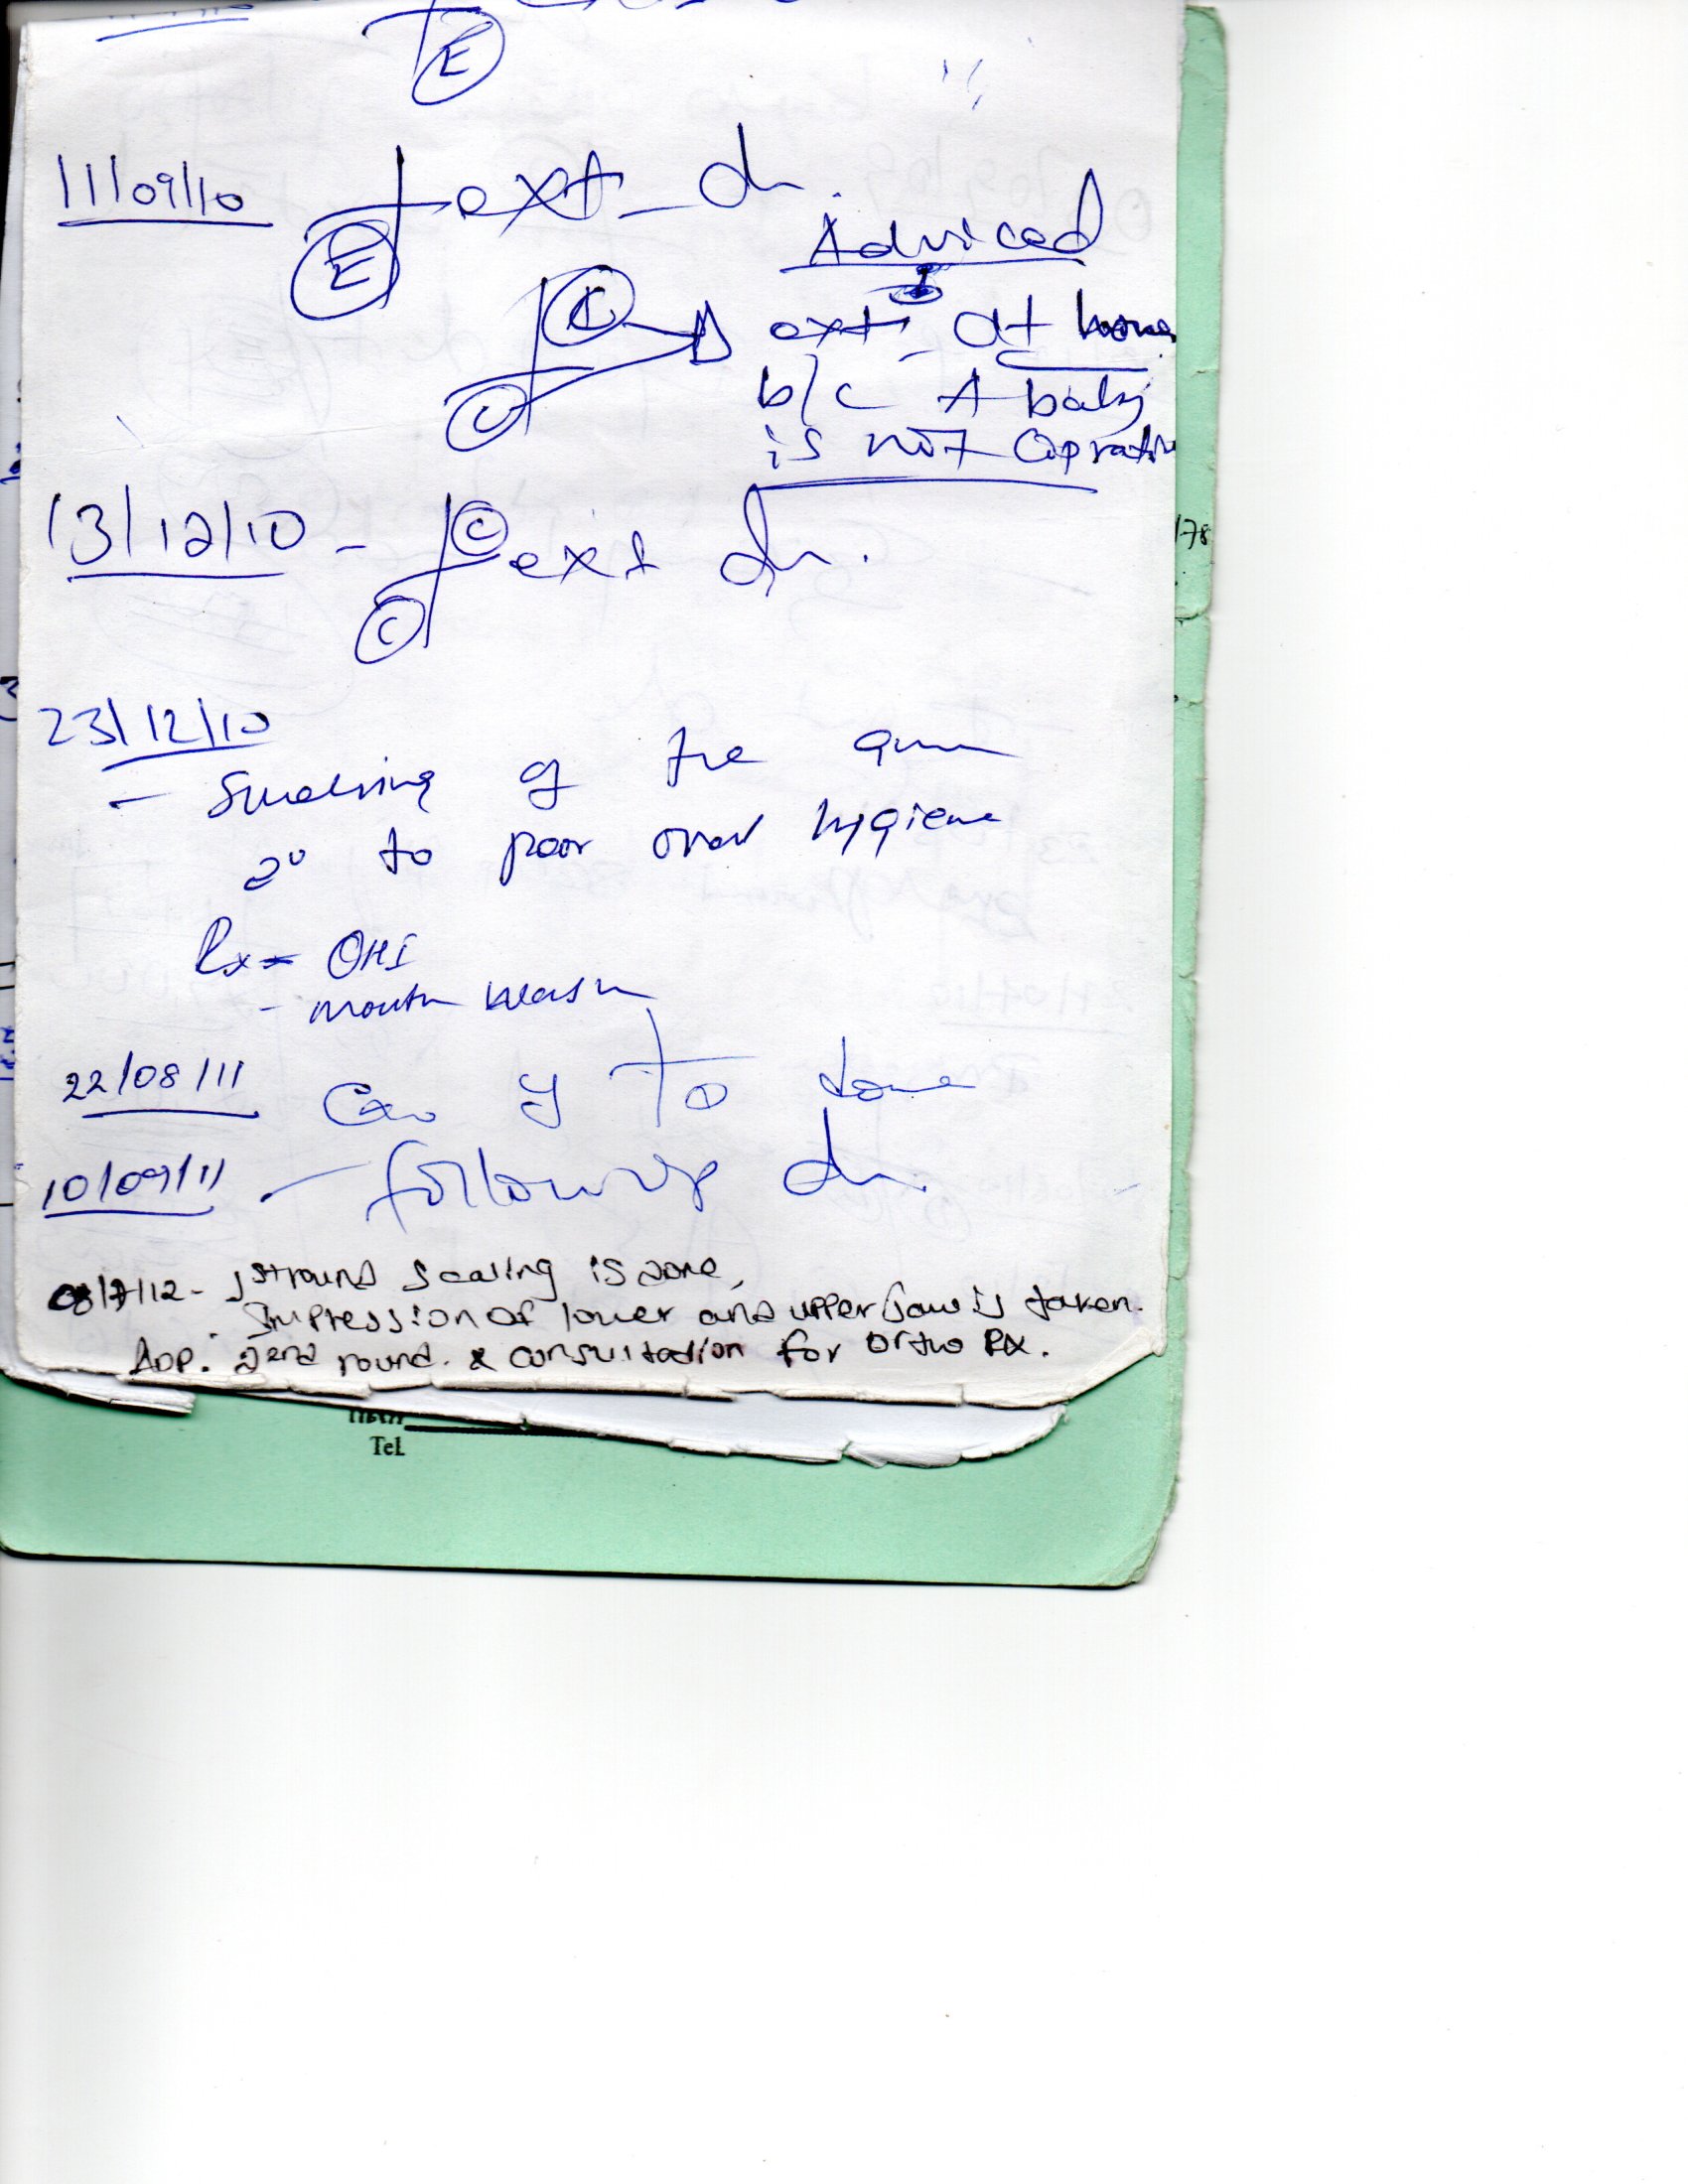 E
11/09/10 E ext - dn.
Adviced
C ext at home
C b/c A baby
is not Coprative
13/12/10 - C ext dn.
C
23/12/10
- Swelling of the gum
2° to poor oral hygiene
Rx= OHI
- mouth wash
22/08/11 to
10/09/11 - follow up dn.
08/7/12 - 1st round scaling is done,
Impression of lower and upper jaw is taken.
App. 22nd round. & consultation for ortho RX.
/78
Tel